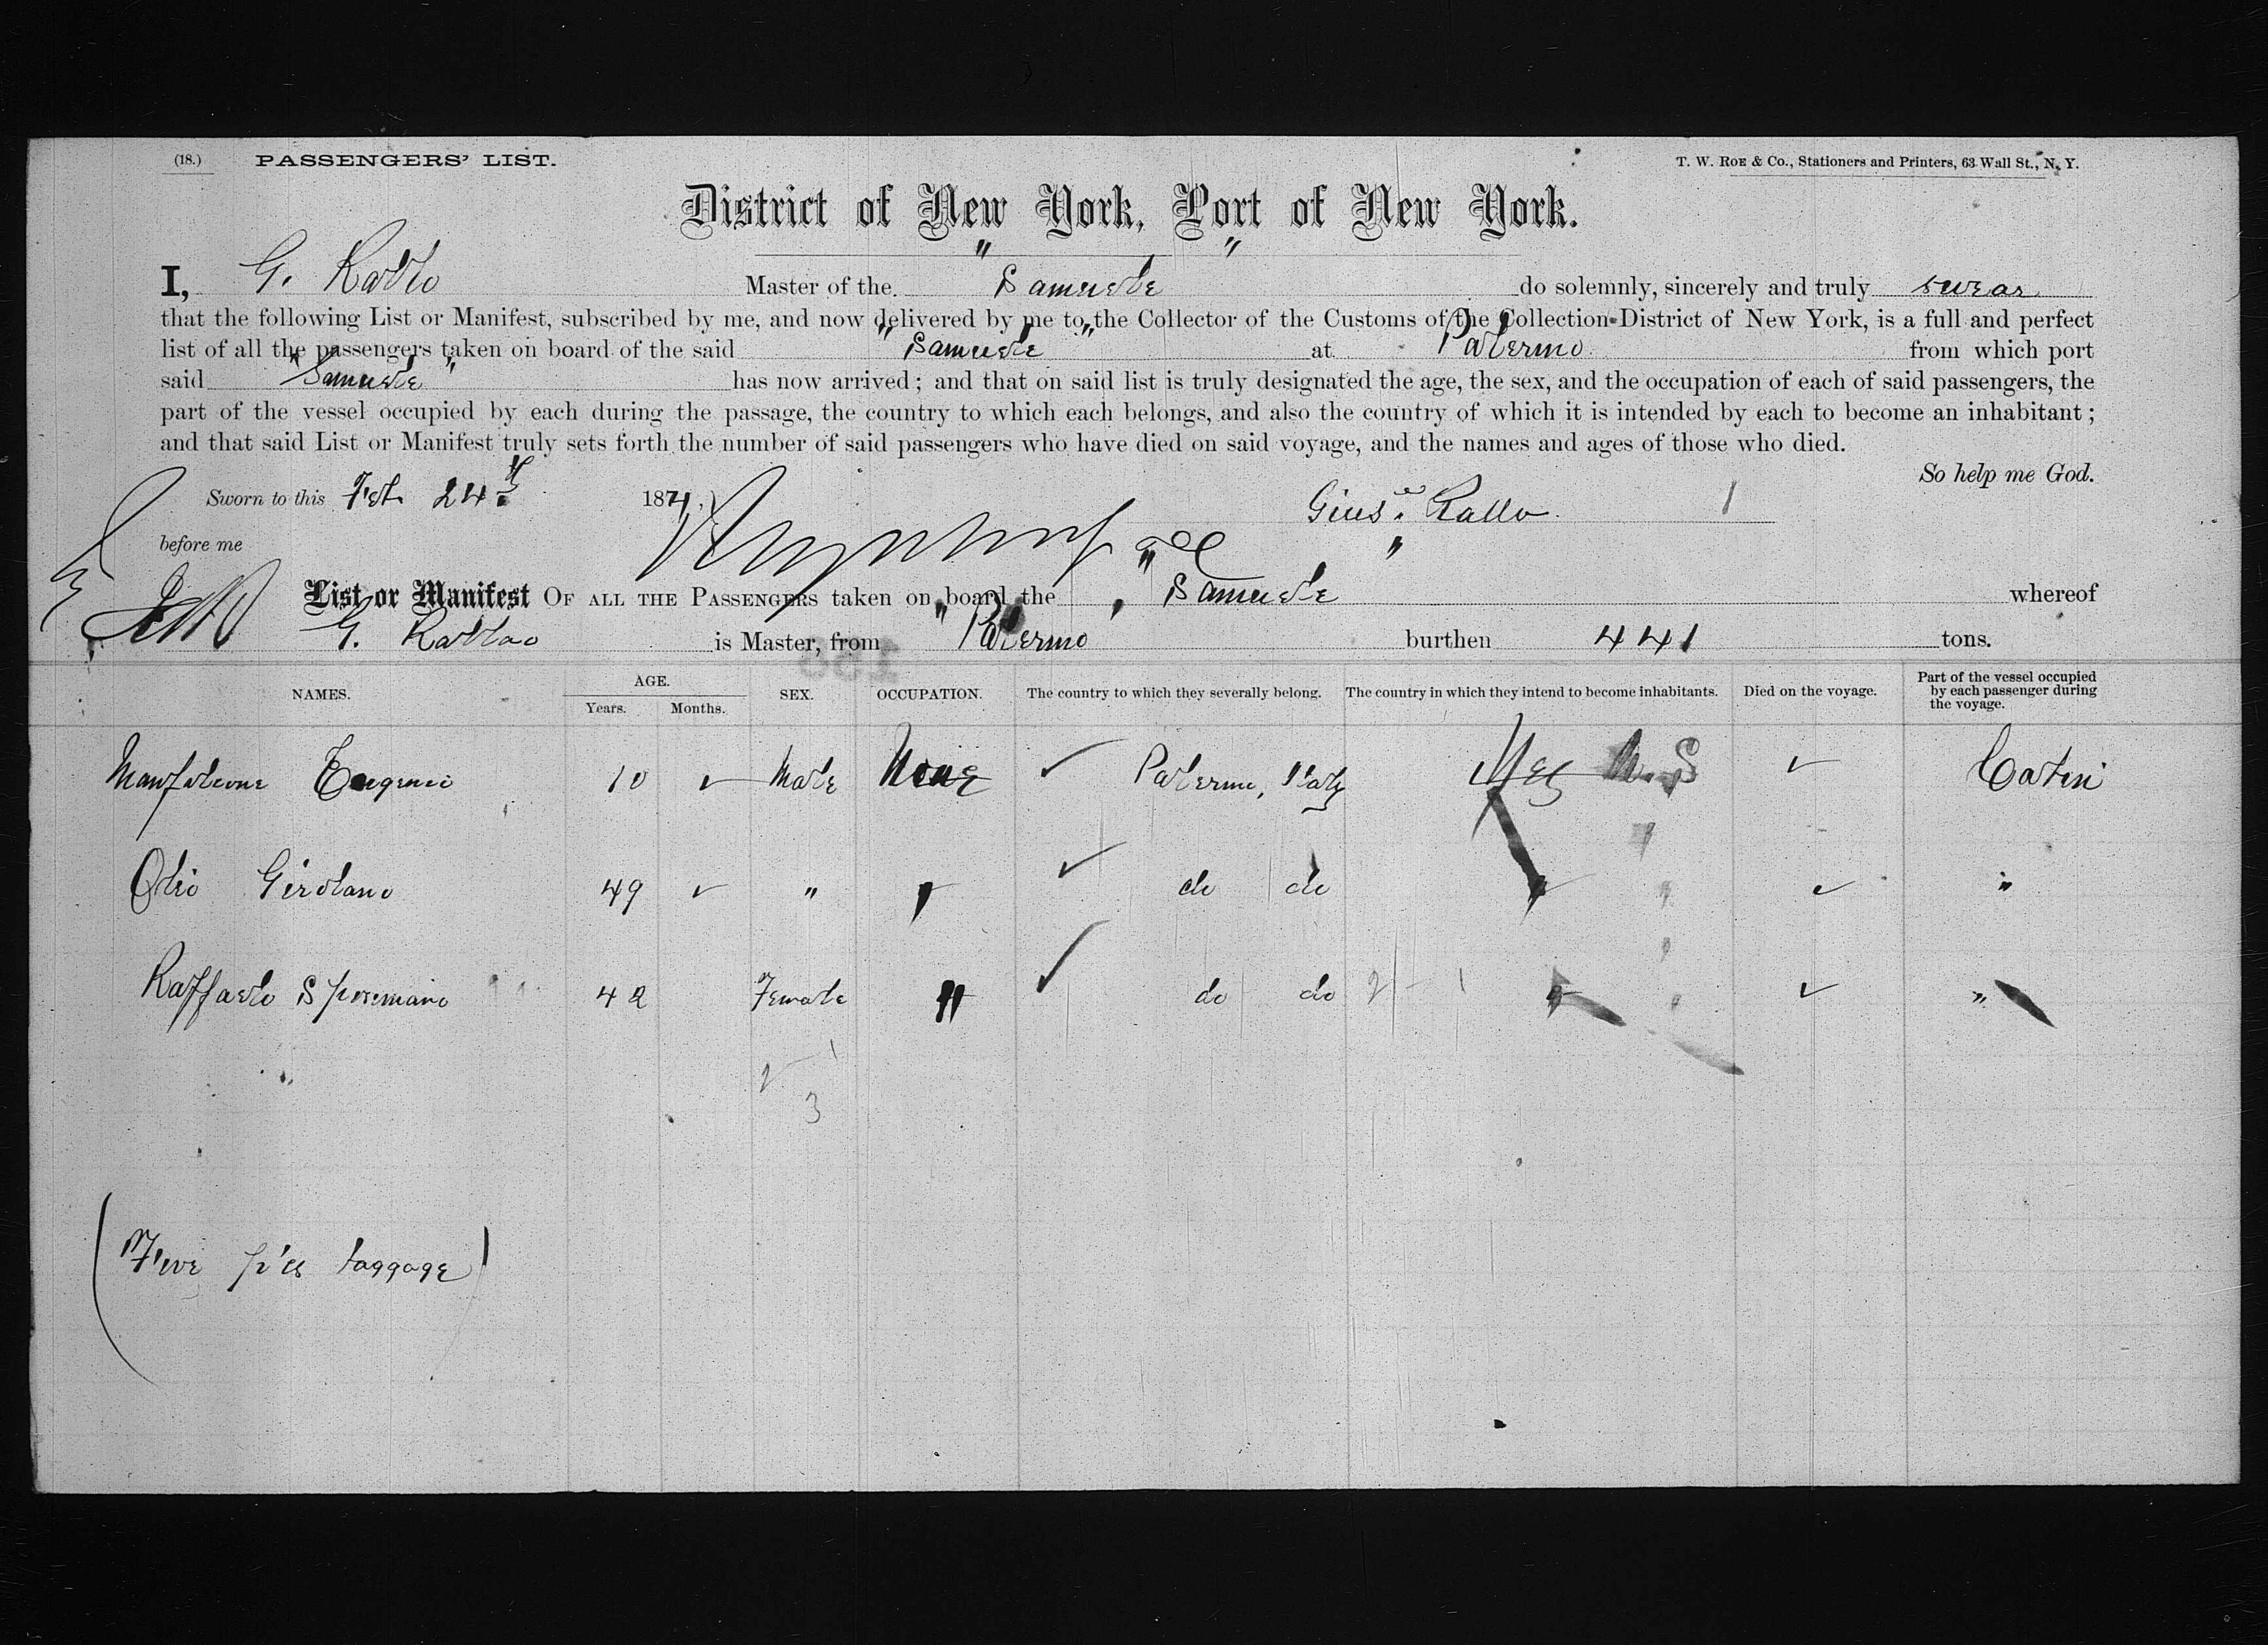 (18.) PASSENGERS' LIST. T. W. ROE & Co., Stationers and Printers, 63 Wall St., N. Y.
District of New York, Port of New York.
I, G. Rallo Master of the "Samuele" do solemnly, sincerely and truly swear
that the following List or Manifest, subscribed by me, and now delivered by me to the Collector of the Customs of the Collection District of New York, is a full and perfect
list of all the passengers taken on board of the said "Samuele" at Palermo from which port
said "Samuele" has now arrived; and that on said list is truly designated the age, the sex, and the occupation of each of said passengers, the
part of the vessel occupied by each during the passage, the country to which each belongs, and also the country of which it is intended by each to become an inhabitant;
and that said List or Manifest truly sets forth the number of said passengers who have died on said voyage, and the names and ages of those who died.
So help me God.
Sworn to this Feb 24th 1874 Giuse. Rallo 1
before me
List or Manifest OF ALL THE PASSENGERS taken on board the "Samuele" whereof
G. Rallo is Master, from "Palermo" burthen 441 tons.
NAMES. AGE. Years. Months. SEX. OCCUPATION. The country to which they severally belong. The country in which they intend to become inhabitants. Died on the voyage. Part of the vessel occupied by each passenger during the voyage.
Eugenio 10 ✓ Male None ✓ Palermo, Italy U.S ✓ Cabin
Olio Girolano 49 ✓ " " ✓ do do " " ✓ "
Raffaelo 42 Female " ✓ do do 2 - 1 " " ✓ "
2 1
3
(Five p'cs baggage)